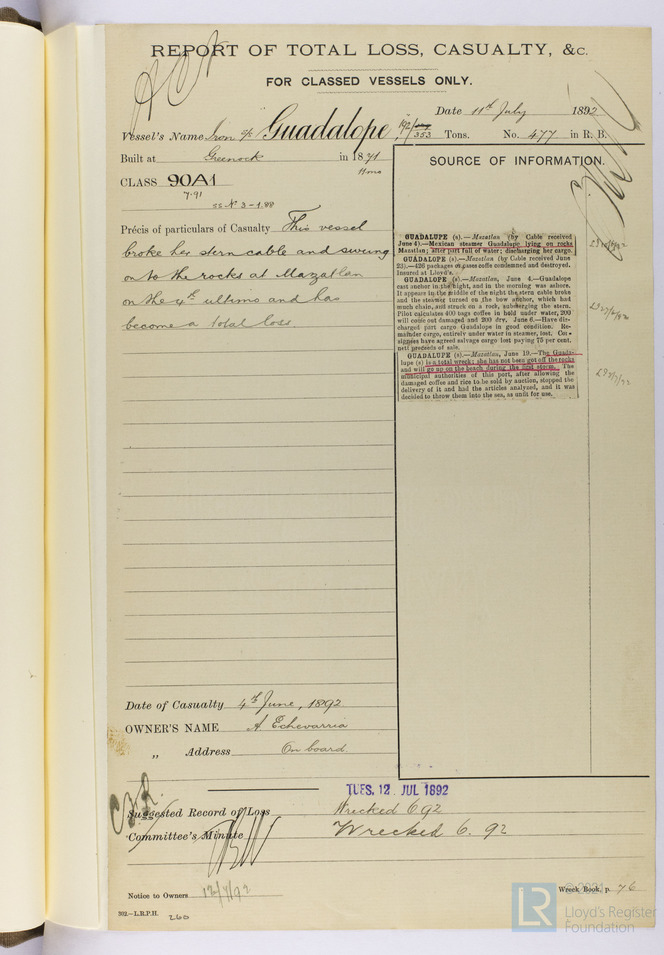 REPORT OF TOTAL LOSS, CASUALTY, &c.
FOR CLASSED VESSELS ONLY.
Date 11th July 1892
Vessel's Name Iron Guadalope 192/353 Tons. No. 477 in R. B.
Built at Greenock in 1871
CLASS 90A1
7.91
ss No 3-1.88
SOURCE OF INFORMATION.
Précis of particulars of Casualty This vessel
broke her stern cable and swung
on to the rocks at Mazatlan
on the 4th ultimo and has
become a total loss
GUADALUPE (s).—Mazatlan (by Cable received
June 4).—Mexican steamer Guadalupe lying on rocks
Mazatlan; after part full of water; discharging her cargo.
GUADALOPE (s).—Mazatlan (by Cable received June
23).—426 packages or cases coffe condemned and destroyed.
Insured at Lloyd's.
GUADALOUPE (s).—Mazatlan, June 4.—Guadalope
cast anchor in the night, and in the morning was ashore.
It appears in the middle of the night the stern cable broke
and the steamer turned on the bow anchor, which had
much chain, and struck on a rock, submerging the stern.
Pilot calculates 400 bags coffee in hold under water, 200
will come out damaged and 200 dry. June 6.—Have dis-
charged part cargo Guadalope in good condition. Re-
mainder cargo, entirely under water in steamer, lost. Con-
signees have agreed salvage cargo lost paying 75 per cent.
nett proceeds of sale.
GUADALUPE (s).—Mazatlan, June 10.—The Guada-
lupe (s) is a total wreck; she has not been got off the rocks
and will go up on the beach during the first storm. The
municipal authorities of this port, after allowing the
damaged coffee and rice to be sold by auction, stopped the
delivery of it and had the articles analyzed, and it was
decided to throw them into the sea, as unfit for use.
Date of Casualty 4th June, 1892
OWNER'S NAME A Echevarria
„ Address On board.
TUES. 12 JUL 1892
Suggested Record of Loss Wrecked 6.92
Committee's Minute Wrecked 6. 92
Notice to Owners 12/7/92
Wreck Book, p. 76
302.—L.R.P.H. 260
LR
Lloyd's Register
Foundation